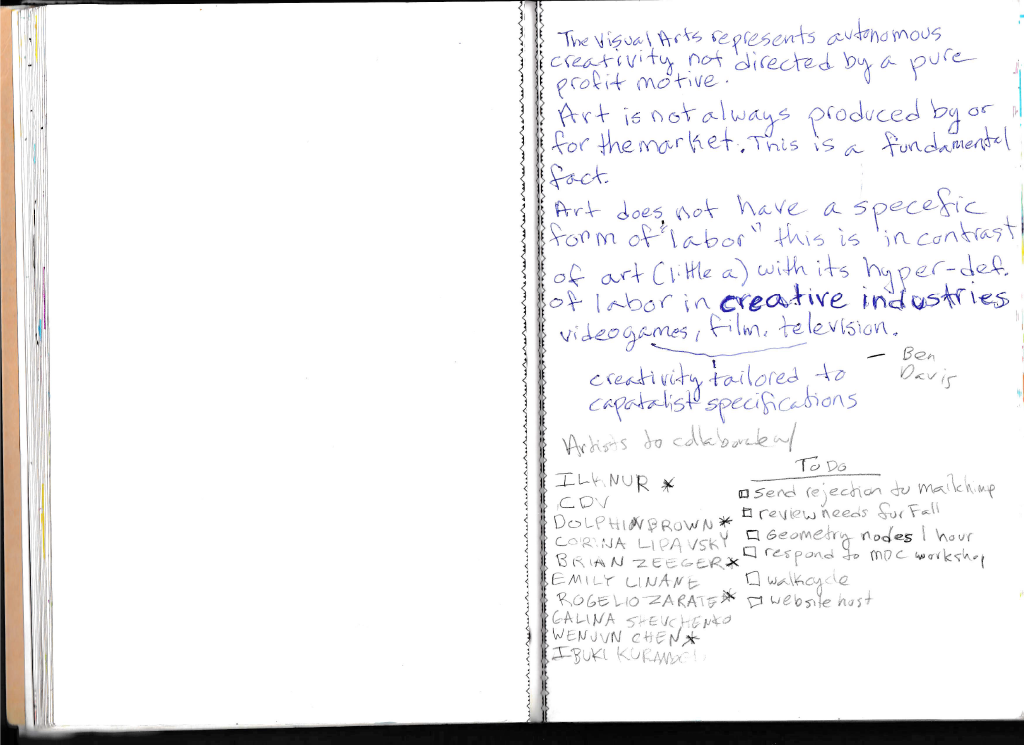 The Visual Arts represents autonomous
creativity not directed by a pure
profit motive.
Art is not always produced by or
for the market. This is a fundamental
fact.
Art does not have a specefic
form of "labor" this is in contrast
of art (little a) with its hyper-def.
of labor in creative industries
videogames, film, television.
— Ben
Davis
creativity tailored to
capatalist specifications
Artists to collaborate w/
ILKNUR *
CDV
DOLPHIN BROWN *
CORINA LIPAVSKY
BRIAN ZEEGER *
EMILY LINANE
ROGELIO ZARATE *
GALINA SHEVCHENKO
WENJUN CHEN *
IBUKI
To Do
☐ send rejection to mailchimp
☐ review needs for Fall
☐ Geometry nodes 1 hour
☐ respond to MDC workshop
☐ walkcycle
☐ website host